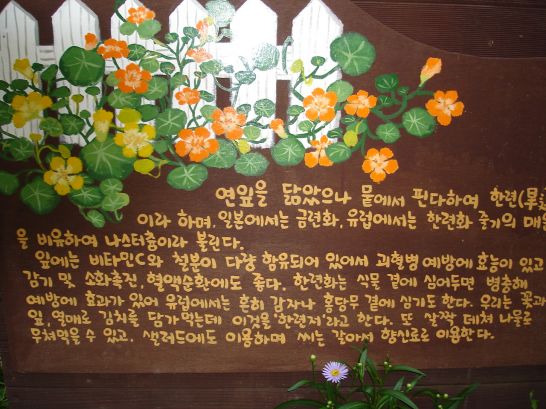 연잎을 닮았으나 뭍에서 핀다하여 한련(旱
이라 하며, 일본에서는 금련화, 유럽에서는 한련화 줄기의 매운
을 비유하여 나스터츔이라 불린다.
잎에는 비타민C와 철분이 다량 함유되어 있어서 괴혈병 예방에 효능이 있고
감기 및 소화촉진, 혈액순환에도 좋다. 한련화는 식물 곁에 심어두면 병충해
예방에 효과가 있어 유럽에서는 흔히 감자나 홍당무 곁에 심기도 한다. 우리는 꽃과
잎, 열매로 김치를 담가먹는데 이것을 '한련저'라고 한다. 또 살짝 데쳐 나물로
무쳐먹을 수 있고, 샐러드에도 이용하며 씨는 갈아서 향신료로 이용한다.